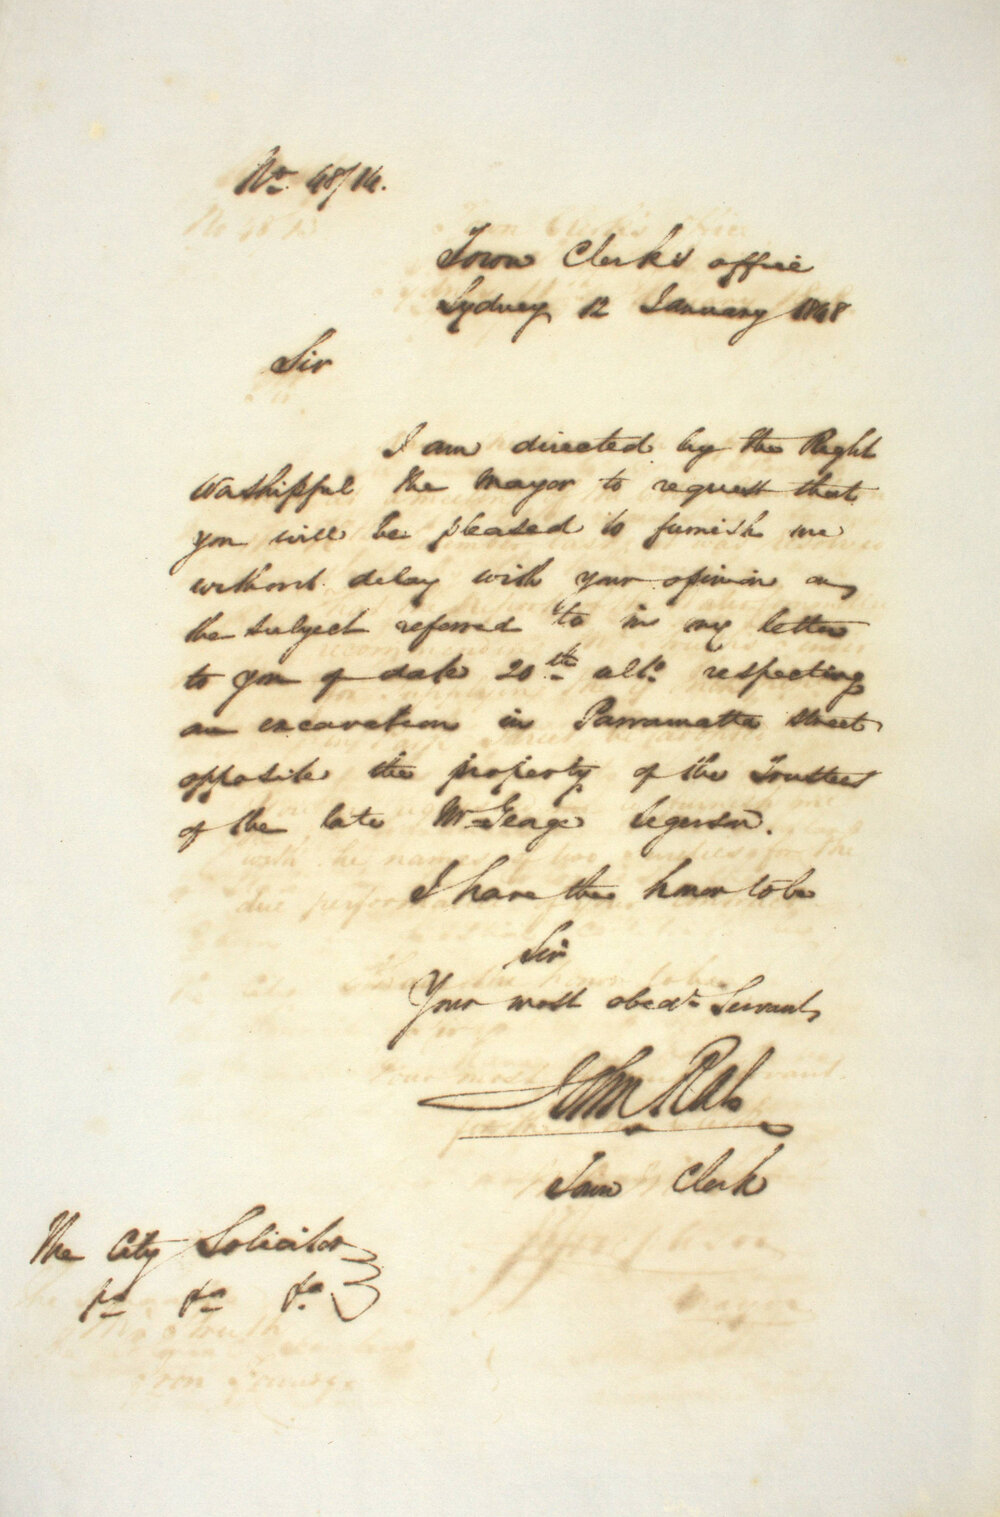 No. 48/14.
Town Clerk's office
Sydney 12 January 1848
Sir
I am directed by the Right
Worshipful the Mayor to request that
you will be pleased to furnish me
without delay with your opinion on
the subject referred to in my letter
to you of date 20th ulto. respecting
an excavation in Parramatta street
opposite the property of the Trustees
of the late Mr George
I have the honor to be
Sir
Your most obedt Servant
John Rae
Town Clerk
The City Solicitor
&a &a &a